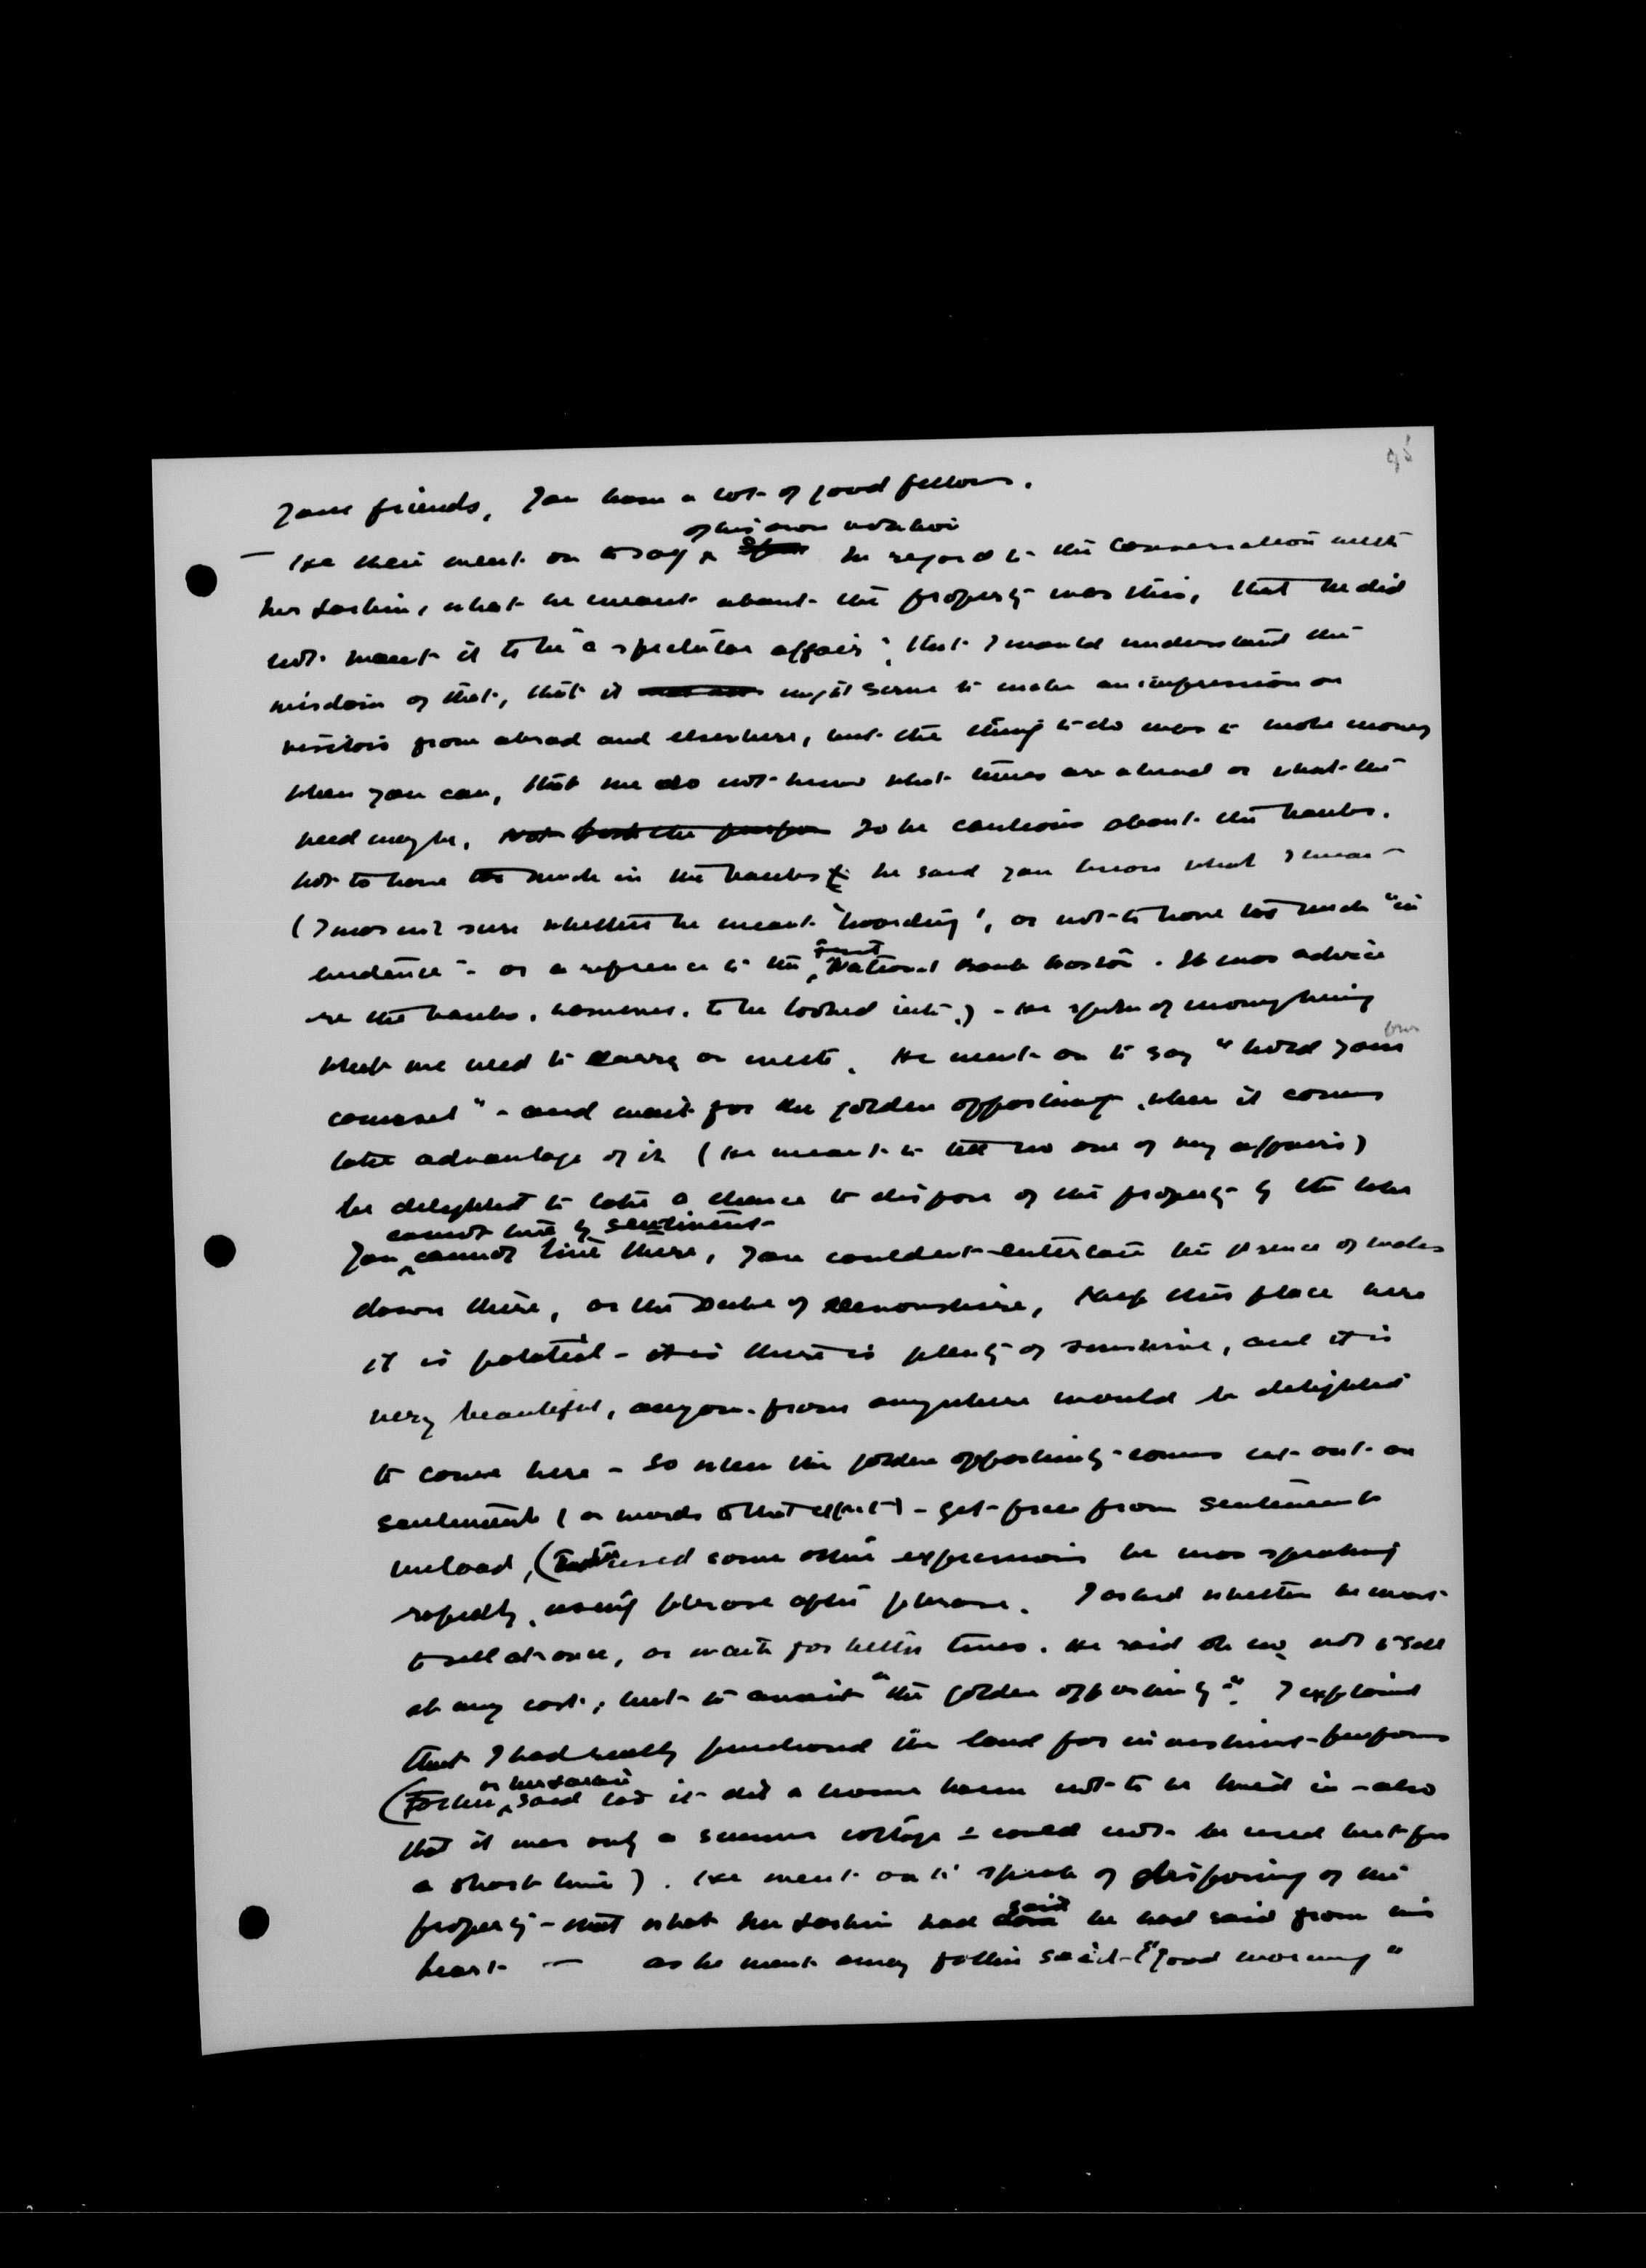 your friends, You have a lot of good fellows.
of his own volition
— He then went on to say in regard to the conversation with
Mr Larkin, what he meant about the property was this, that he did
not want it to be a spectator affair; that I would understand the
wisdom of that, that it might serve to make an impression on
visitors from abroad and elsewhere, but the thing to do was to make money
when you can, that we do not know what times are ahead or what the
need may be, To be cautious about the banks.
not to have too much in the banks he said you know what I mean –
(I was not sure whether he meant 'hoarding', or not to have too much "in
evidence" - or a reference to the first National Bank Boston. It was advice
re the banks, however, to be looked into.) - He spoke of money being
what we need to carry on with. He went on to say "hold your own
counsel" - and wait for the golden opportunity when it comes
take advantage of it (He meant to tell no one of my affairs)
be delighted to take a chance to dispose of the property by the lake
cannot live by sentiment
You cannot live there, You couldn't entertain the Prince of Wales
down there, or the Duke of Devonshire, Keep this place here
it is palatial - there is plenty of sunshine, and it is
very beautiful, anyone from anywhere would be delighted
to come here - So when the golden opportunity comes cut out on
sentiment (or words to that effect) - get free from sentiment
unload, ( used some other expressions he was speaking
rapidly using phrase after phrase. I asked whether he meant
to sell at once, or wait for better times. He said oh no, not to sell
at any cost, but to await "the golden opportunity". I explained
that I had really purchased the land for investment purposes
or Mr Larkin
(Father said too it did a house harm not to be lived in - also
that it was only a summer cottage & could not be used but for
a short time). He went on to speak of disposing of the
said
property - that what Mr Larkin had he had said from his
heart — as he went away father said - "good morning"